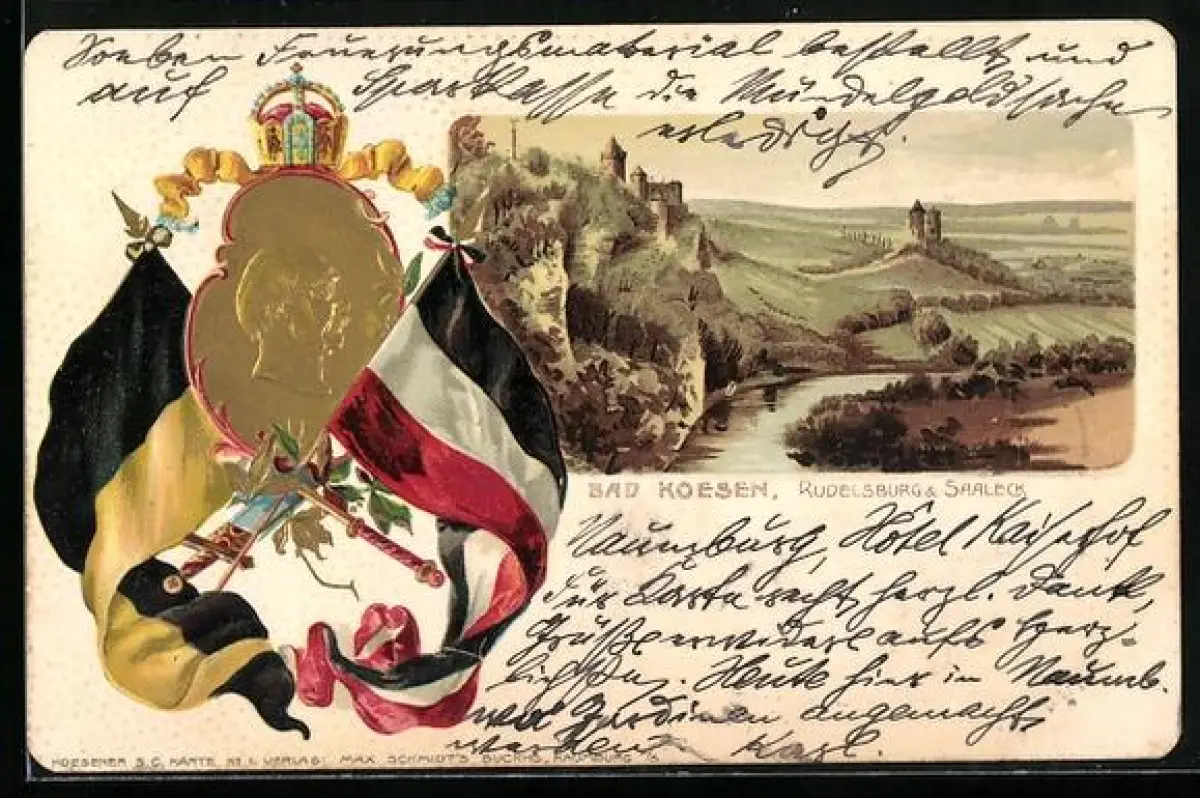 Soeben Feuerungsmaterial bestellt und
auf Sparkasse die Mündelgeldsache
erledigt.
BAD KOESEN, RUDELSBURG & SAALECK
Naumburg, Hôtel Kaiserhof
Für Karte recht herzl. Dank,
Grüße erwidere aufs herz-
lichste. Heute hier in Naumb.
Gardinen angemacht
worden Karl.
KOESENER S.C. KARTE No 1. VERLAG: MAX SCHMIDT'S BUCHH., NAUMBURG